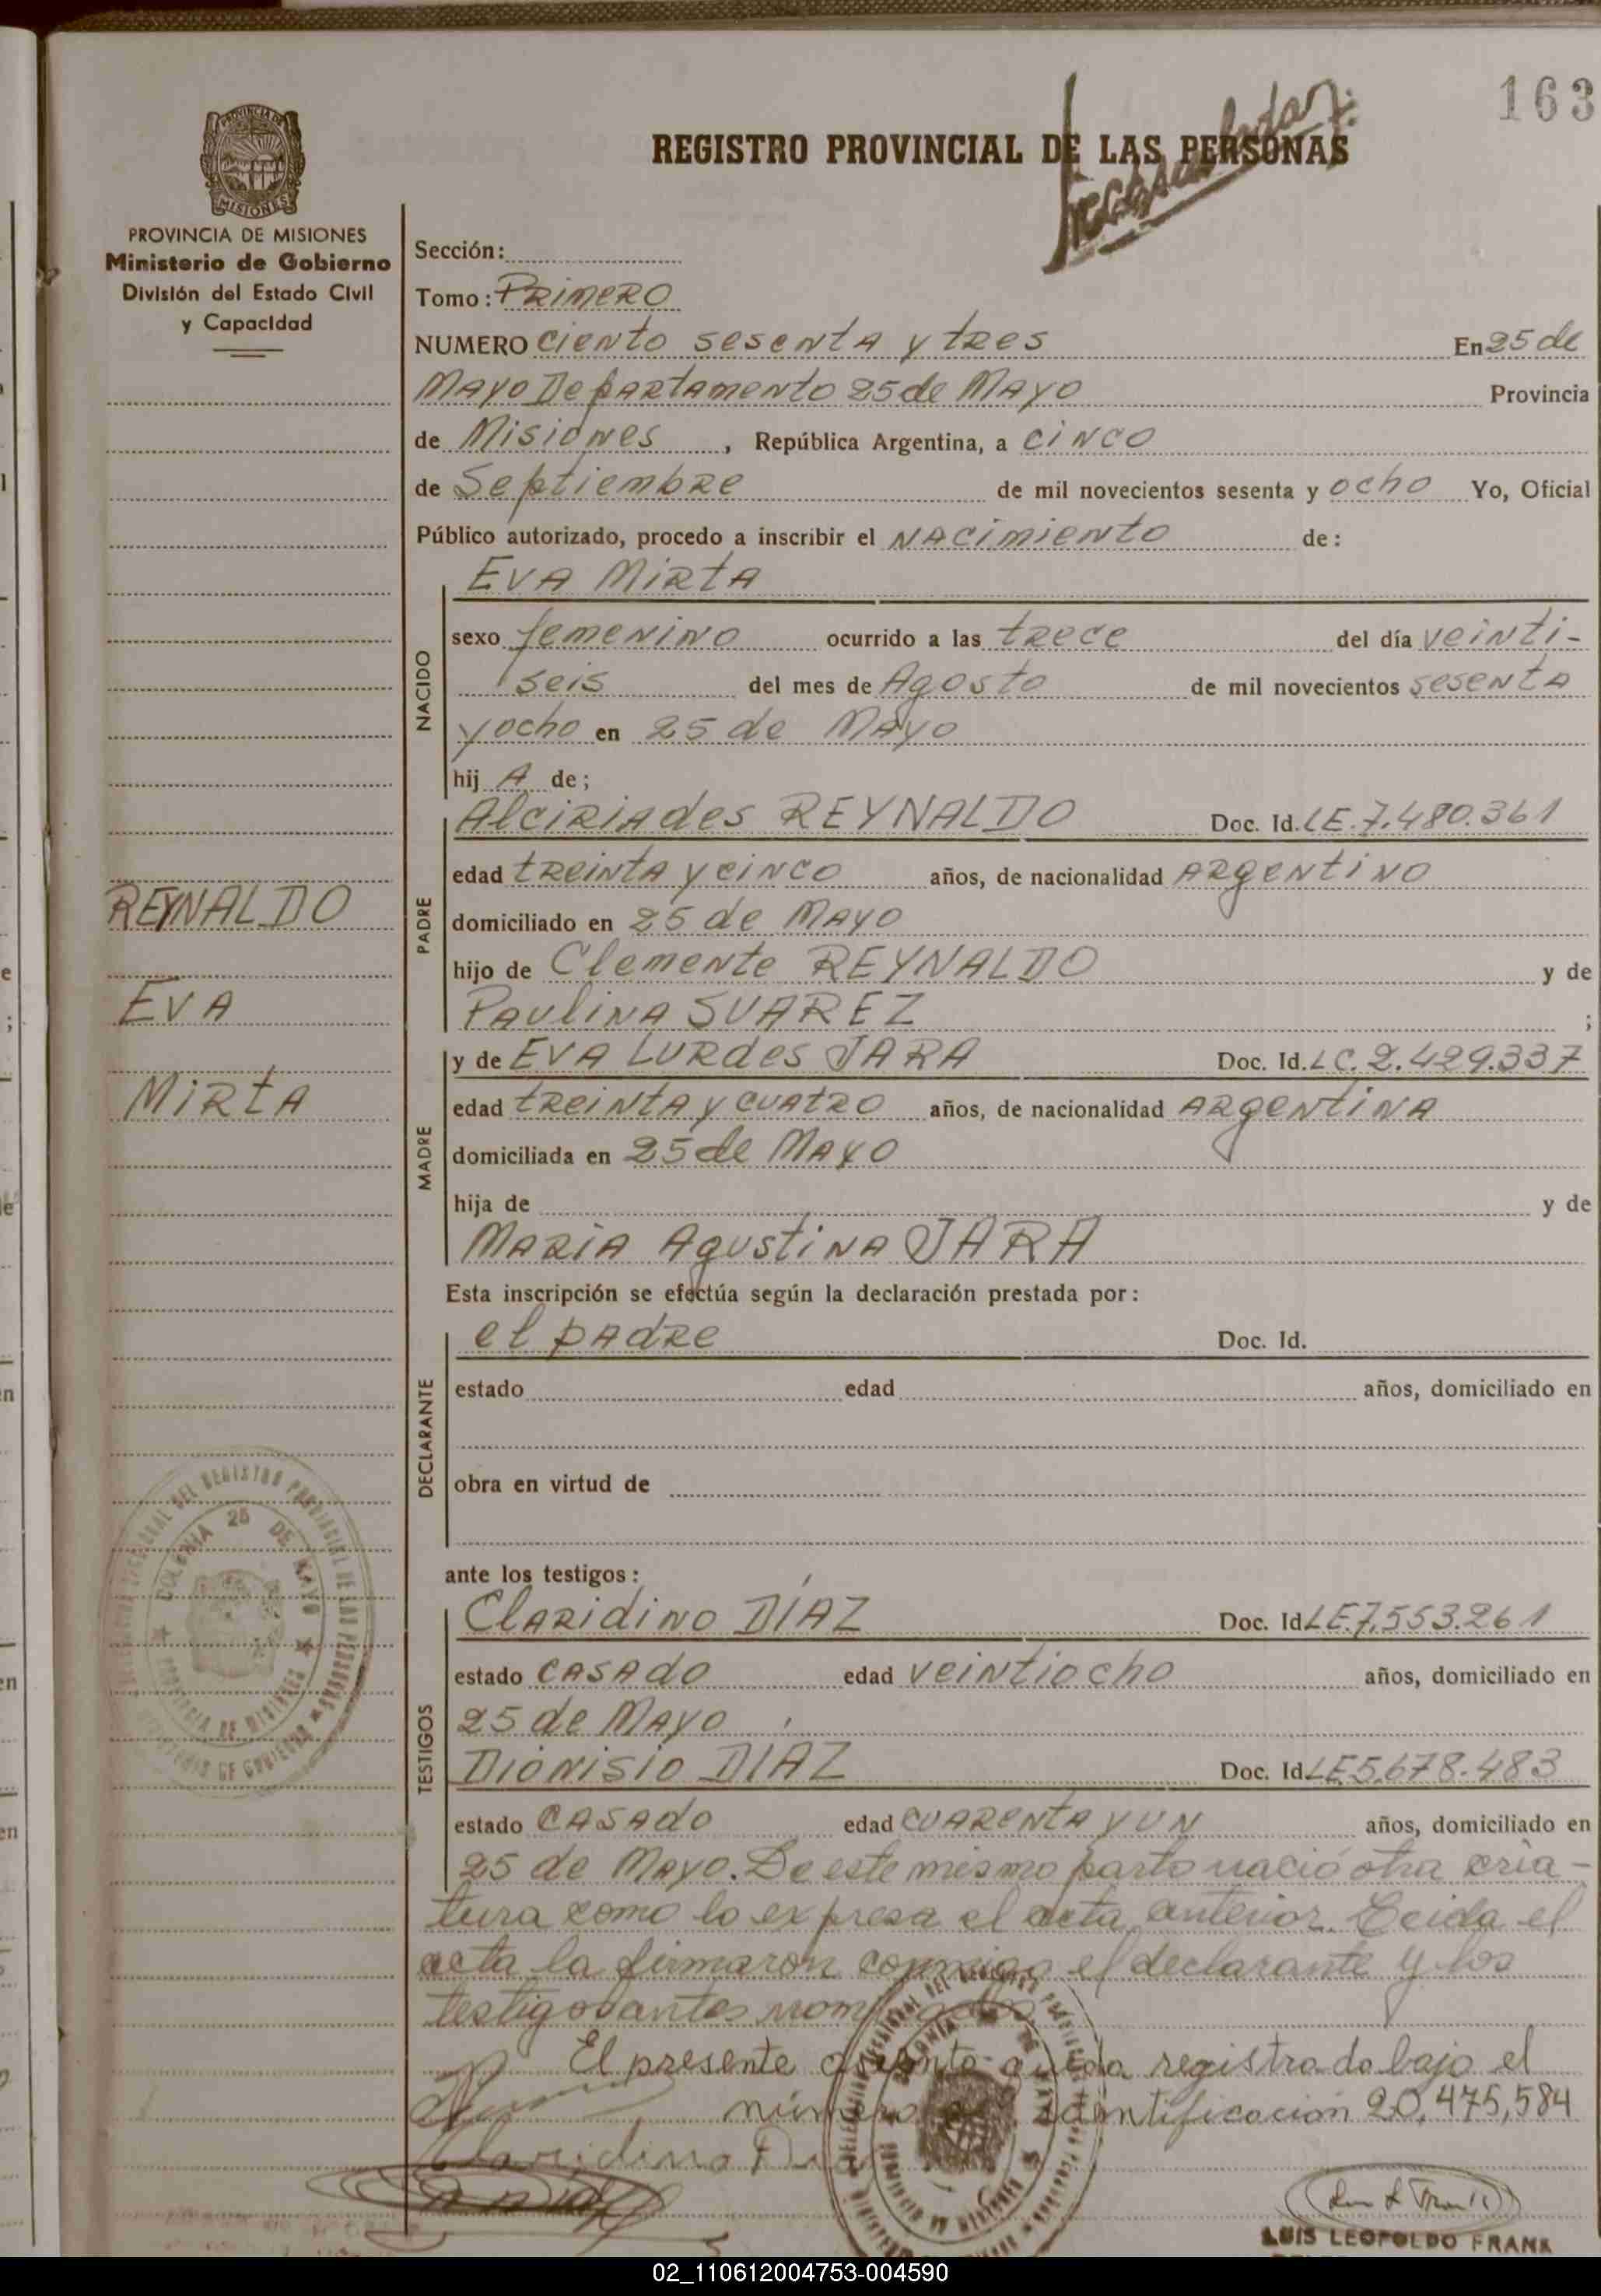 163
REGISTRO PROVINCIAL DE LAS PERSONAS
PROVINCIA DE MISIONES
Ministerio de Gobierno
División del Estado Civil
y Capacidad
Sección:
Tomo: PRIMERO
NUMERO Ciento sesenta y tres En 25 de
Mayo Departamento 25 de Mayo Provincia
de Misiones, República Argentina, a cinco
de Septiembre de mil novecientos sesenta y ocho Yo, Oficial
Público autorizado, procedo a inscribir el Nacimiento de:
Eva Mirta
NACIDO
sexo femenino ocurrido a las trece del día veinti-
seis del mes de Agosto de mil novecientos sesenta
y ocho en 25 de Mayo
hij A de;
PADRE
Alciriades REYNALDO Doc. Id. LE.7.480.361
edad treinta y cinco años, de nacionalidad Argentino
domiciliado en 25 de Mayo
hijo de Clemente REYNALDO y de
Paulina SUAREZ ;
MADRE
y de Eva Lurdes JARA Doc. Id. LC.2.429.337
edad treinta y cuatro años, de nacionalidad Argentina
domiciliada en 25 de Mayo
hija de y de
Maria Agustina JARA
REYNALDO
Eva
Mirta
Esta inscripción se efectúa según la declaración prestada por:
DECLARANTE
el padre Doc. Id.
estado edad años, domiciliado en
obra en virtud de
ante los testigos:
TESTIGOS
Claridino DÍAZ Doc. Id LE.7.553.261
estado casado edad veintiocho años, domiciliado en
25 de Mayo
Dionisio DIAZ Doc. Id. LE5.678.483
estado casado edad cuarenta y un años, domiciliado en
25 de Mayo. De este mismo parto nació otra cria-
tura como lo expresa el acta anterior. Leida el
acta la firmaron conmigo el declarante y los
testigos antes nombrados
El presente asiento queda registrado bajo el
número de identificación 20,475,584
Claridino Díaz
COLONIA 25 DE MAYO
PROVINCIA DE MISIONES
LUIS LEOPOLDO FRANK
02_110612004753-004590